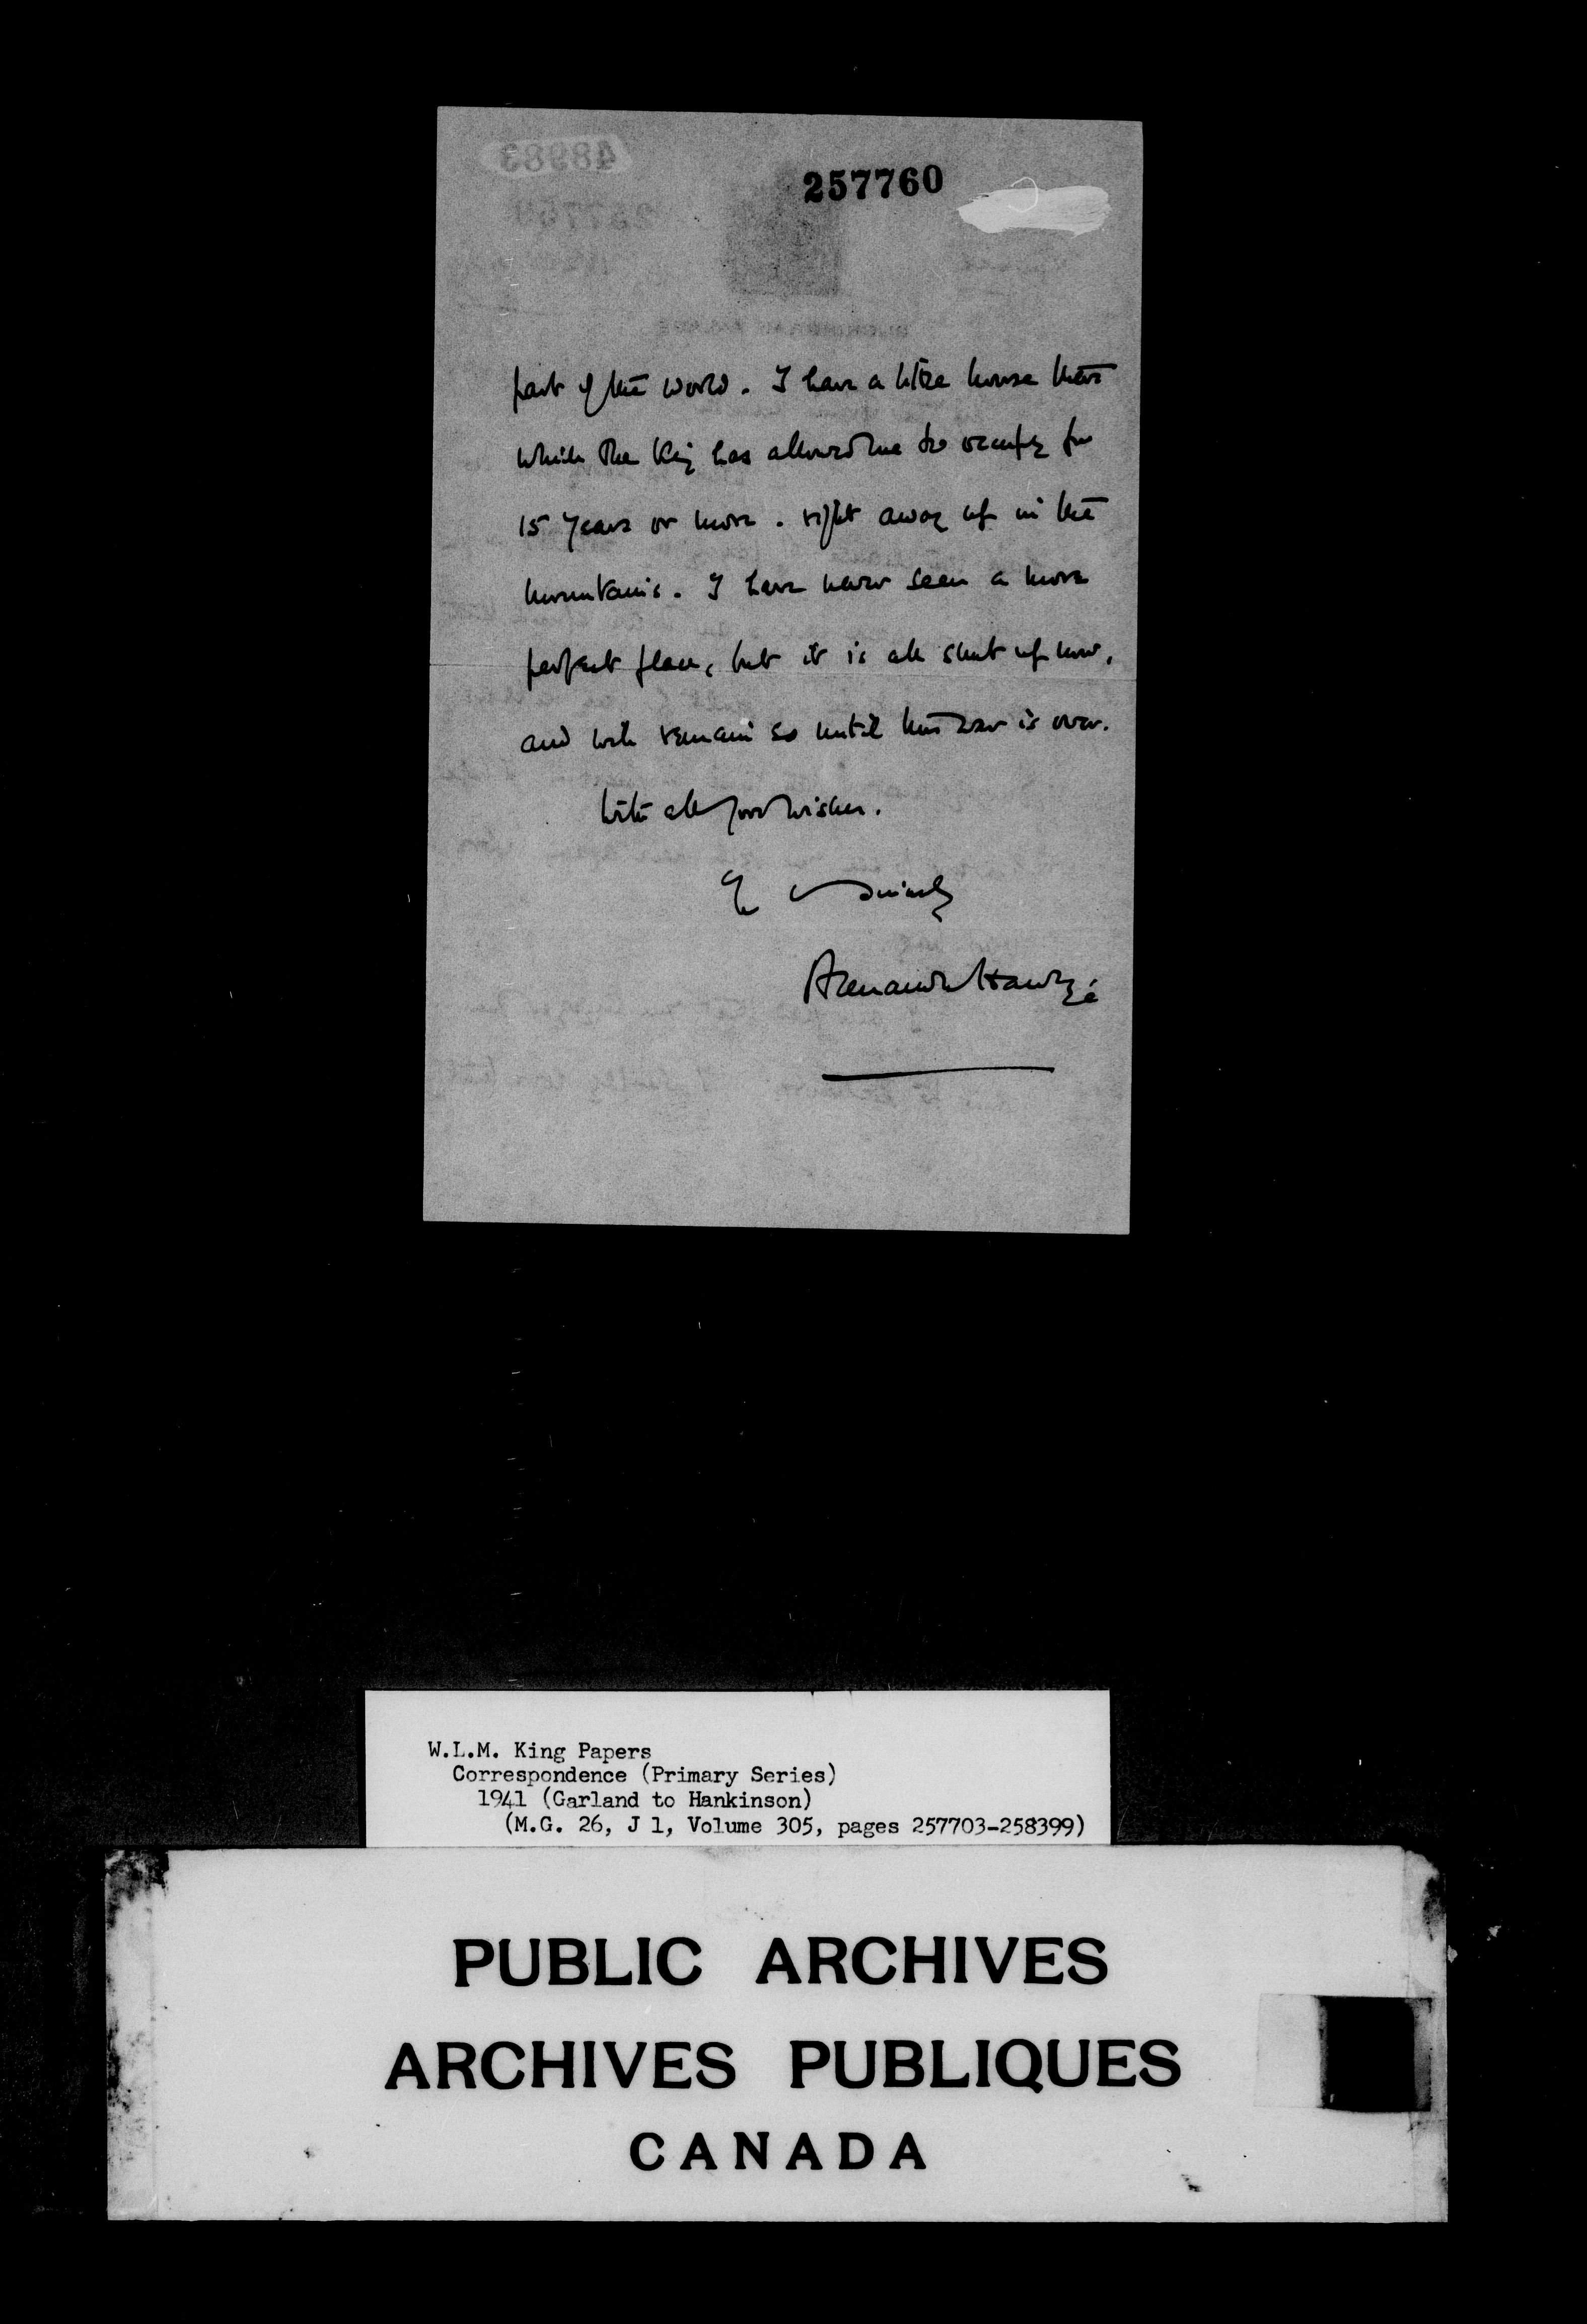 257760
part of the world. I have a little house there
which the King has allowed me to occupy for
15 years or more. right away up in the
mountains. I have never seen a more
perfect place, but it is all shut up now,
and will remain so until this war is over.
With all good wishes.
sincerely
Alexander Hardinge
W.L.M. King Papers
Correspondence (Primary Series)
1941 (Garland to Hankinson)
(M.G. 26, J 1, Volume 305, pages 257703-258399)
PUBLIC ARCHIVES
ARCHIVES PUBLIQUES
CANADA